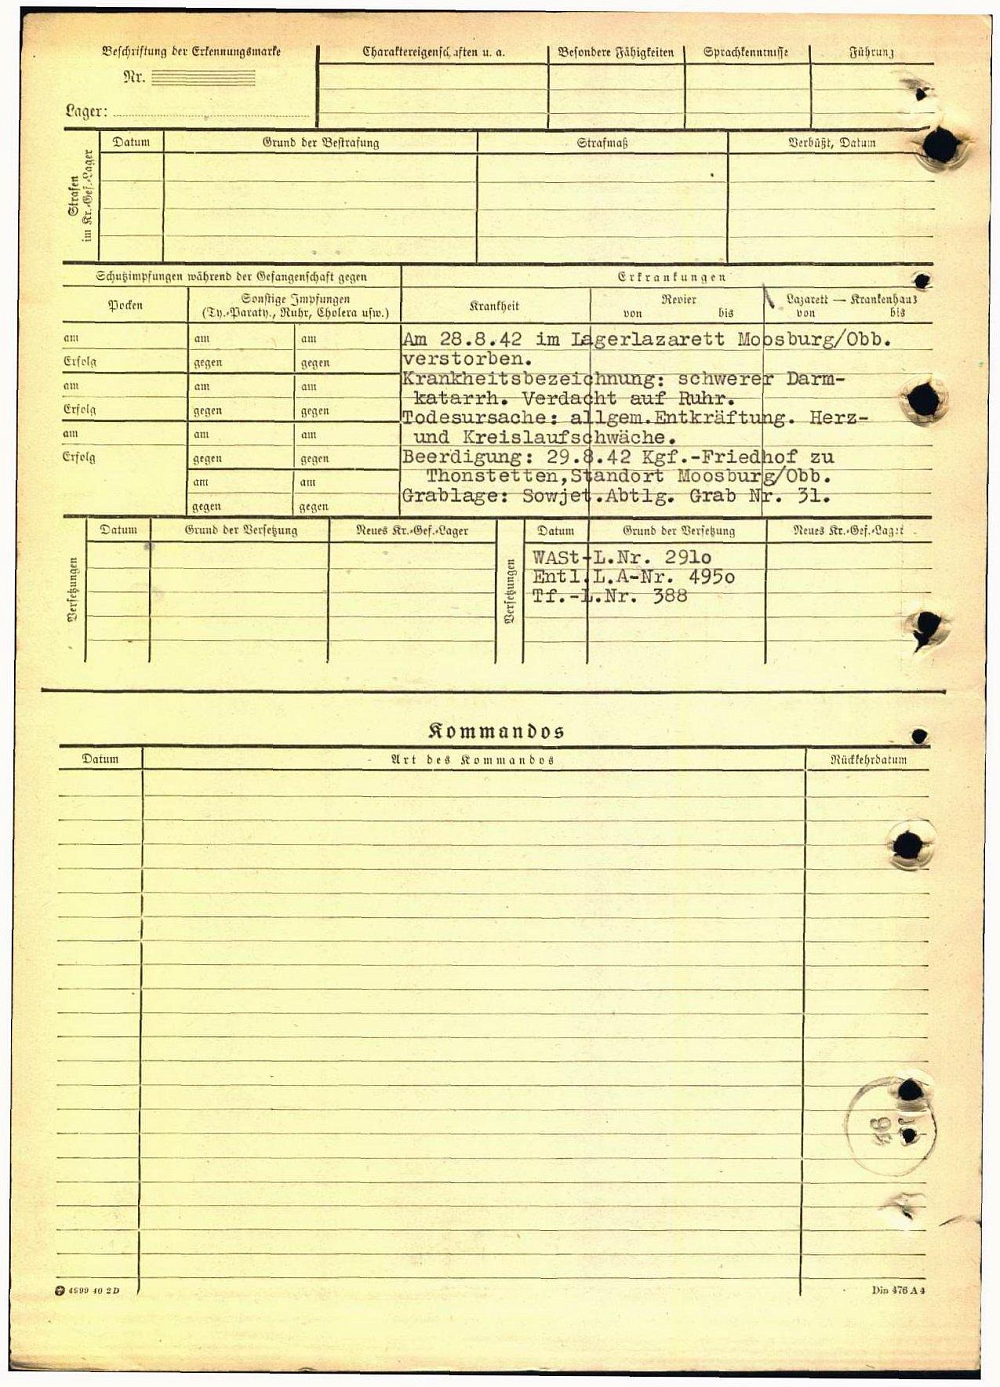 Beschriftung der Erkennungsmarke
Nr.
Lager:
Charaktereigenschaften u. a.
Besondere Fähigkeiten
Sprachkenntnisse
Führung
Strafen
im Kr.-Gef.-Lager
Datum
Grund der Bestrafung
Strafmaß
Verbüßt, Datum
Schutzimpfungen während der Gefangenschaft gegen
Erkrankungen
Pocken
Sonstige Impfungen
(Ty.-Paraty., Ruhr, Cholera usw.)
Krankheit
Revier
von bis
Lazarett — Krankenhaus
von bis
am am am
Erfolg gegen gegen
am am am
Erfolg gegen gegen
am am am
Erfolg gegen gegen
am am
gegen gegen
Am 28.8.42 im Lagerlazarett Moosburg/Obb.
verstorben.
Krankheitsbezeichnung: schwerer Darm-
katarrh. Verdacht auf Ruhr.
Todesursache: allgem.Entkräftung. Herz-
und Kreislaufschwäche.
Beerdigung: 29.8.42 Kgf.-Friedhof zu
Thonstetten,Standort Moosburg/Obb.
Grablage: Sowjet.Abtlg. Grab Nr. 31.
Versetzungen
Datum
Grund der Versetzung
Neues Kr.-Gef.-Lager
Versetzungen
Datum
Grund der Versetzung
Neues Kr.-Gef.-Lager
WASt-L.Nr. 291o
Entl.L.A-Nr. 495o
Tf.-L.Nr. 388
Kommandos
Datum
Art des Kommandos
Rückkehrdatum
4999 40 2 D
Din 476 A 4